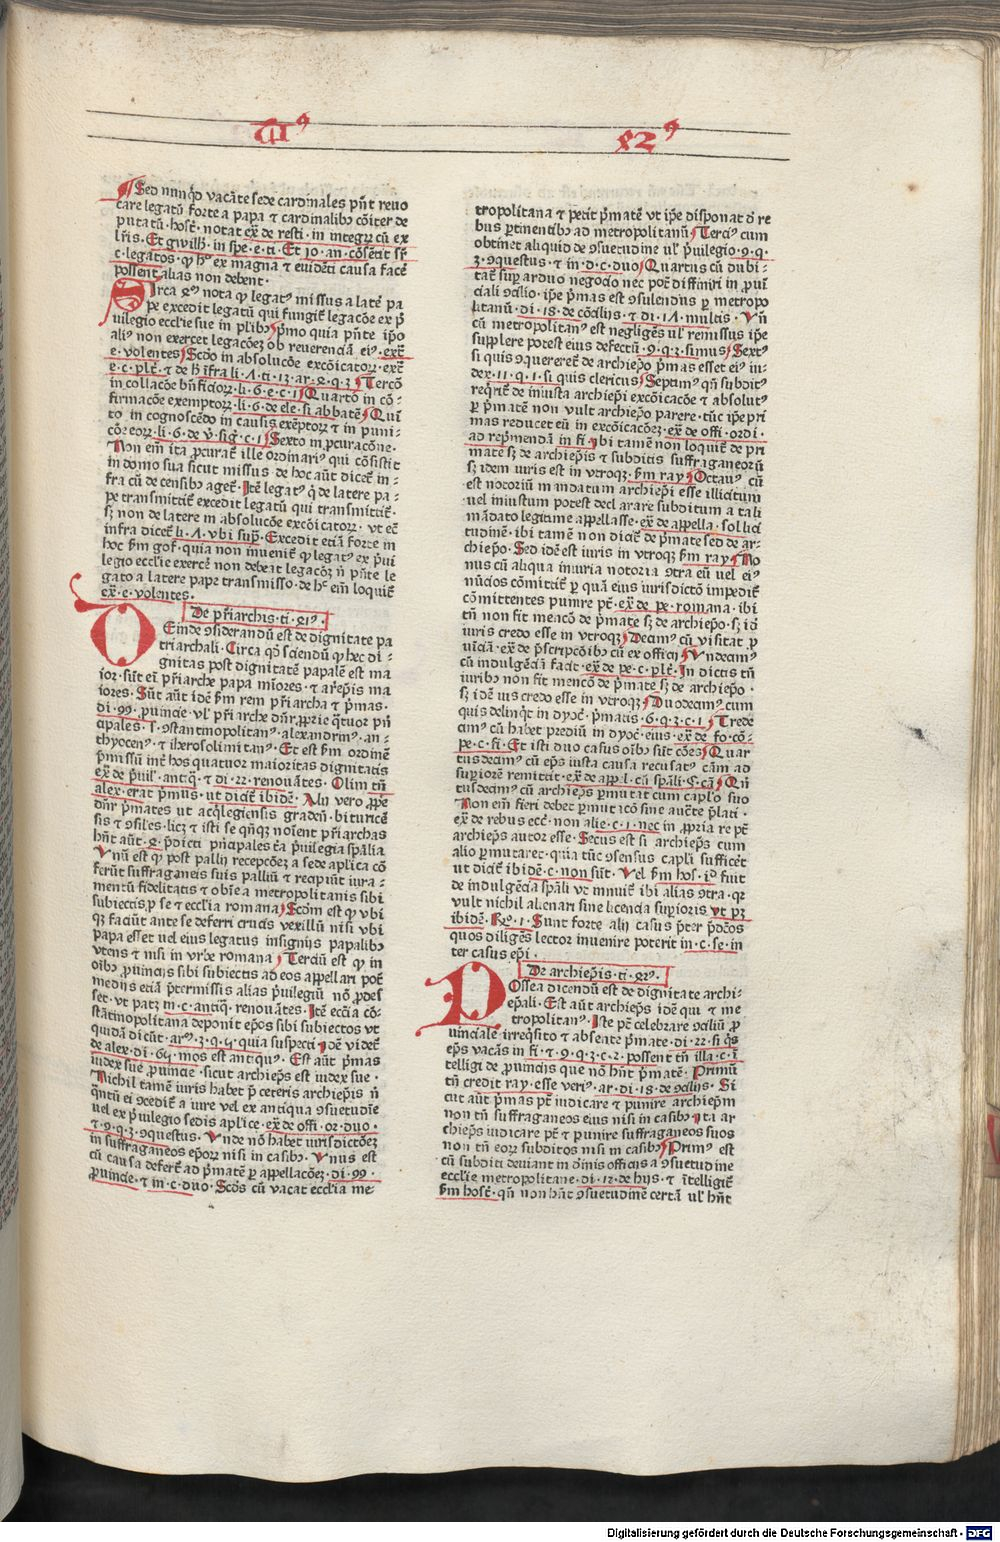 Sed nunqd vacāte sede cardinales pn̄t reuo
care legatū forte a papa ⁊ cardinalibꝫ cōiter de
putatū· host̄· notat ex̄ de resti· in integꝝ cū ex
lr̄is. Et gwilh· in spe· e· ti· Et io· an· cōsētit sr̄
c· legatos· ꝙ hͦ ex magna ⁊ euidēti causa facē
possent alias non debent·
Circa nota ꝙ legatꝰ missus a latē pa
pe excedit legatū qui fungit̄ legacōe ex p̄
uilegio ecclīe sue in plibꝫ pͥmo quia pn̄te ipͦo
aliꝰ non exercet legacōeꝫ ob reuerenciā eiꝰ· ext̄
e· volentes Scdͦo in absolucōe excōicatoꝝ· ext̄
e· c· plc̄· ⁊ de h̄ infra li· Λ· ti· 13· ar· 2· q· 3 Tercō
in collacōe bn̄ficioꝝ· li· 6· e· c· i Quartō in cō-
firmacōe exemptoꝝ· li· 6· de ele· si abbatē Quī
to in cognoscēdo in causis exēptoꝝ ⁊ in puni-
cōe eoꝝ· li· 6· de v̄· sig̃· c· i Sexto in ꝓcuracōne·
Non em̄ ita ꝓcurat̄ ille ordinariꝰ qui cōsistit
in domo sua sicut missus de hoc aūt dicet̄ in-
fra cū de censibꝫ aget̄· Itē legatꝰ q̄ de latere pa-
pe transmittit̄ excedit legatū qui transmittit̄·
sꝫ non de latere in absolucōe excōicatoꝝ· vt ec̄
infra dicet̄ li· Λ· vbi sup̄· Excedit eciā forte in
hoc ẜm gof· quia non inuenit̄ ꝙ legatꝰ ex p̄ui
legio ecclīe exercē non debeat legacōꝫ n̄ pn̄te le
gato a latere pape transmisso· de hͦ em̄ loquit̄
ex̄· e· volentes·
De pr̄iarchis· ti·
DEinde ꝯsiderandū est de dignitate pa
triarchali· Circa qd̄ sciendū ꝙ hec di-
gnitas post dignitatē papalē est ma
ior· sūt em̄ pr̄iarche papa mīores· ⁊ arep̄is ma
iores· Sūt aūt idē ẜm rem pr̄iarcha ⁊ pͥmas·
di· 99· ꝓuincie· vl̄ pr̄iarche dn̄r ꝓprie qͣtuor pn̄
cipales· s· ꝯstantinopolitanꝰ· alexandrinꝰ· an-
thyocenꝰ· ⁊ iherosolimitanꝰ· Et est ẜm ordinē
pͥmissū int̄ hos quatuor maioritas dignitatis
ex̄ de p̄uil· antiq̄· ⁊ di· 22· renouātes· Olim tn̄
alex· erat pͥmus· ut dicit̄ ibidē· Alij vero ꝓpe
dn̄r pͥmates ut acqͥlegiensis gradeū· bituricē
sis ⁊ ꝯsiles· licꝫ ⁊ isti se qn̄qꝫ noīent pr̄iarchas
hn̄t aūt· p̄dicti pͥncipales t̄a p̄uilegia sp̄alia
Vnū est ꝙ post pallij recepcōeꝫ a sede aplica cō
ferūt suffraganeis suis palliū ⁊ recipiūt iura-
mentū fidelitatis ⁊ obīe a metropolitanis sibi
subiectis· ꝓ se ⁊ ecclīa romana Scdm̄ est ꝙ vbi
qꝫ faciūt ante se deferri crucis vexillū nisi vbi
papa esset vel eius legatus insignijs papalibꝫ
vtens ⁊ nisi in vrbe romana Terciū est ꝙ in
oībꝫ ꝓuincijs sibi subiectis ad eos appellari pot̄
medijs eciā p̄termissis alias p̄uilegiū nō ꝓdes
set· vt patꝫ in· c· antiq̄· renouātes· Itē eccīa cō-
stātinopolitana deponit ep̄os sibi subiectos vt
quidā dicūt· arᵒ· 3· q· 4· quia suspecti idē videt̄
de alex· di· 64· mos est antiquꝰ· Est aūt pͥmas
iudex sue ꝓuincie· sicut archiep̄s est iudex sue·
Nichil tamē iuris habet pͥ ceteris archiep̄is n̄
qͣntū ei ꝯcedit̄ a iure vel ex antiqua ꝯsuetudīe
vel ex p̄uilegio sedis aplice· ex̄ de offi· oꝛ· duo·
⁊· 9· q· 3· ꝯquestus· Vnde nō habet iurisdictōeꝫ
in suffraganeos ep̄oꝝ nisi in casibꝫ· Vnus est
cū causa defert̄ ad pͥmatē ꝑ appellacōeꝫ· di· 99·
ꝓuincie· ⁊ in· c· duo· Scdͦs cū vacat ecclīa me
tropolitana ⁊ petit pͥmatē vt ip̄e disponat d̄ re
bus ꝑtinentibꝫ ad metropolitanū Terciꝰ cum
obtinet aliquid de ꝯsuetudine ul̄ p̄uilegio· 9· q·
3· ꝯquestus· ⁊ in· d· c· duo Quartus cū dubi-
tat̄ sup̄ arduo negocio nec pot̄ diffiniri in ꝓuī
ciali ꝯcilio· ip̄e pͥmas est ꝯsulendus ꝑ metropo
litanū· di· 18· de cōcilijs· ⁊ di· 1Λ· multis· Vn̄
cū metropolitanꝰ est negligēs ul̄ remissus ip̄e
supplere potest eius defectū· 9· q· 3· simus Sextꝰ
si quis ꝯquereret̄ de archiep̄o pͥmas esset eiꝰ iu-
dex· 11· q· 1· si quis clericus Septimꝰ qn̄ subditꝰ
reqͥrit̄ de iniusta archiep̄i excōicacōe ⁊ absolutꝰ
ꝑ pͥmatē non vult archiep̄o parere· tūc ip̄e pri
mas reducet eū in excōicacōeꝫ· ex̄ de offi· ordi·
ad rep̄mendā in fi· ibi tamē non loquit̄ de pri
mate sꝫ de archiep̄is ⁊ subditis suffraganeorū
sꝫ idem iuris est in vtroqꝫ· ẜm ray Octauꝰ cū
est notoriū mandatum archiep̄i esse illicitum
vel iniustum potest declarare subditum a tali
mādato legitime appellasse· ex̄ de appella· sollici
tudinē· ibi tamē non dicit̄ de pͥmate sed de ar-
chiep̄o· Sed idē est iuris in vtroqꝫ ẜm ray No
nus cū aliqua iniuria notoria ꝯtra eū vel eiꝰ
nūcios cōmittit̄ ꝑ quā eius iurisdictō impedit̄
cōmittentes punire pt̄· ex̄ de pe· romana· ibi
tn̄ non fit mencō de pͥmate sꝫ de archiep̄o· sꝫ idē
iuris credo esse in vtroqꝫ Decimꝰ cū visitat ꝓ
uīciā· ex̄ de p̄scripcōibꝫ cū ex officij Vndecimꝰ
cū indulgēciā facit· ex̄ de pe· c· plc̄· In dictis tn̄
iuribꝫ non fit mencō de pͥmate sꝫ de archiep̄o·
sꝫ idē ius credo esse in vtroqꝫ Duodecimꝰ cum
quis delinqͥt in dyoc̄· pͥmatis· 6· q· 3· c· 1 Trede
cimꝰ cū habet prediū in dyoc̄· eius· ex̄ de fo· cō-
pe· c· fi· Et isti duo casus oībꝫ sūt cōes Quar
tusdecimꝰ cū ep̄s iusta causa recusatꝰ cām ad
superiorē remittit· ex̄ de app̄l· cū sp̄ali· §· cā Qn̄
tusdecimꝰ cū archiep̄s ꝑmutat cum caplͦo suo
Non em̄ fieri debet ꝑmutacō sine auc̄te p̄lati·
ex̄ de rebus ecc̄· non alie· c· 1· nec in ꝓpria re pt̄
archiep̄s autor esse· Secus est si archiep̄s cum
alio ꝑmutaret· quia tūc ꝯsensus capli sufficēt
ut dicit̄ ibidē· c· non sūt· Vel ẜm hos· id̄ fuit
de indulgēcia sp̄ali vt inuit̄ ibi alias ꝯtra· qꝛ
vult nichil alienari sine licencia superioris vt pꝫ
ibidē· Rᵒ· 1· Sunt forte alij casus p̄ter p̄dcōs
quos diligēs lector inuenire poterit in· c· se· in
ter casus ep̄i·
De archiep̄is· ti·
POstea dicendū est de dignitate archi-
ep̄ali· Est aūt archiep̄s idē qui ⁊ me
tropolitanꝰ· Iste pt̄ celebrare ꝯciliū ꝓ
uinciale irreqͥsito ⁊ absente pͥmate· di· 22· si qͥs
ep̄s vacās in fi· ⁊· 9· q· 3· c· 2· possent tn̄ illa· c· ī
telligi de ꝓuincijs que nō hn̄t pͥmatē· Primū
tn̄ credit ray· esse verꝰ· ar· di· 18· de ꝯcilijs· Si
cut aūt pͥmas pt̄ iudicare ⁊ punire archiep̄m
non tn̄ suffraganeos eius nisi in casibꝫ ita ar
chiep̄s iudicare pt̄ ⁊ punire suffraganeos suos
non tn̄ eoꝝ subditos nisi in casibꝫ Primꝰ est
cū subditi deuiant in diuinis officijs a ꝯsuetudine
ecclīe metropolitane· di· 12· de hijs· ⁊ ītelligit̄
ẜm host̄· qn̄ non hn̄t ꝯsuetudinē certā ul̄ hn̄t
Digitalisierung gefördert durch die Deutsche Forschungsgemeinschaft - DFG